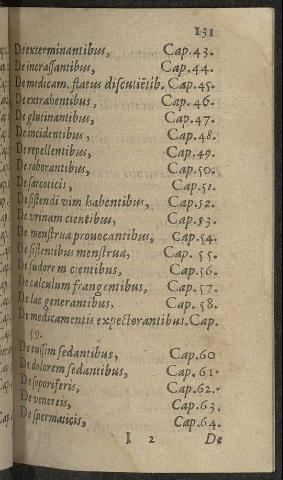 131
De exterminantibus, Cap.43.
De incrassantibus, Cap.44.
De medicam. flatus discutiētib. Cap.45.
De extrahentibus, Cap.46.
De glutinantibus, Cap.47.
De incidentibus, Cap.48.
De repellentibus, Cap.49.
De roborantibus, Cap.50.
De sarcoticis, Cap.51.
De sistendi vim habentibus, Cap.52.
De vrinam cientibus, Cap.53.
De menstrua prouocantibus, Cap.54.
De sistentibus menstrua, Cap. 55.
De sudorem cientibus, Cap.56.
De calculum frangentibus, Cap.57.
De lac generantibus, Cap. 58.
De medicamentis expectorantibus. Cap.
59.
De tussim sedantibus, Cap.60
De dolorem sedantibus, Cap.61.
De soporiferis, Cap.62.
De venereis, Cap.63.
De spermaticis, Cap.64.
I 2 De